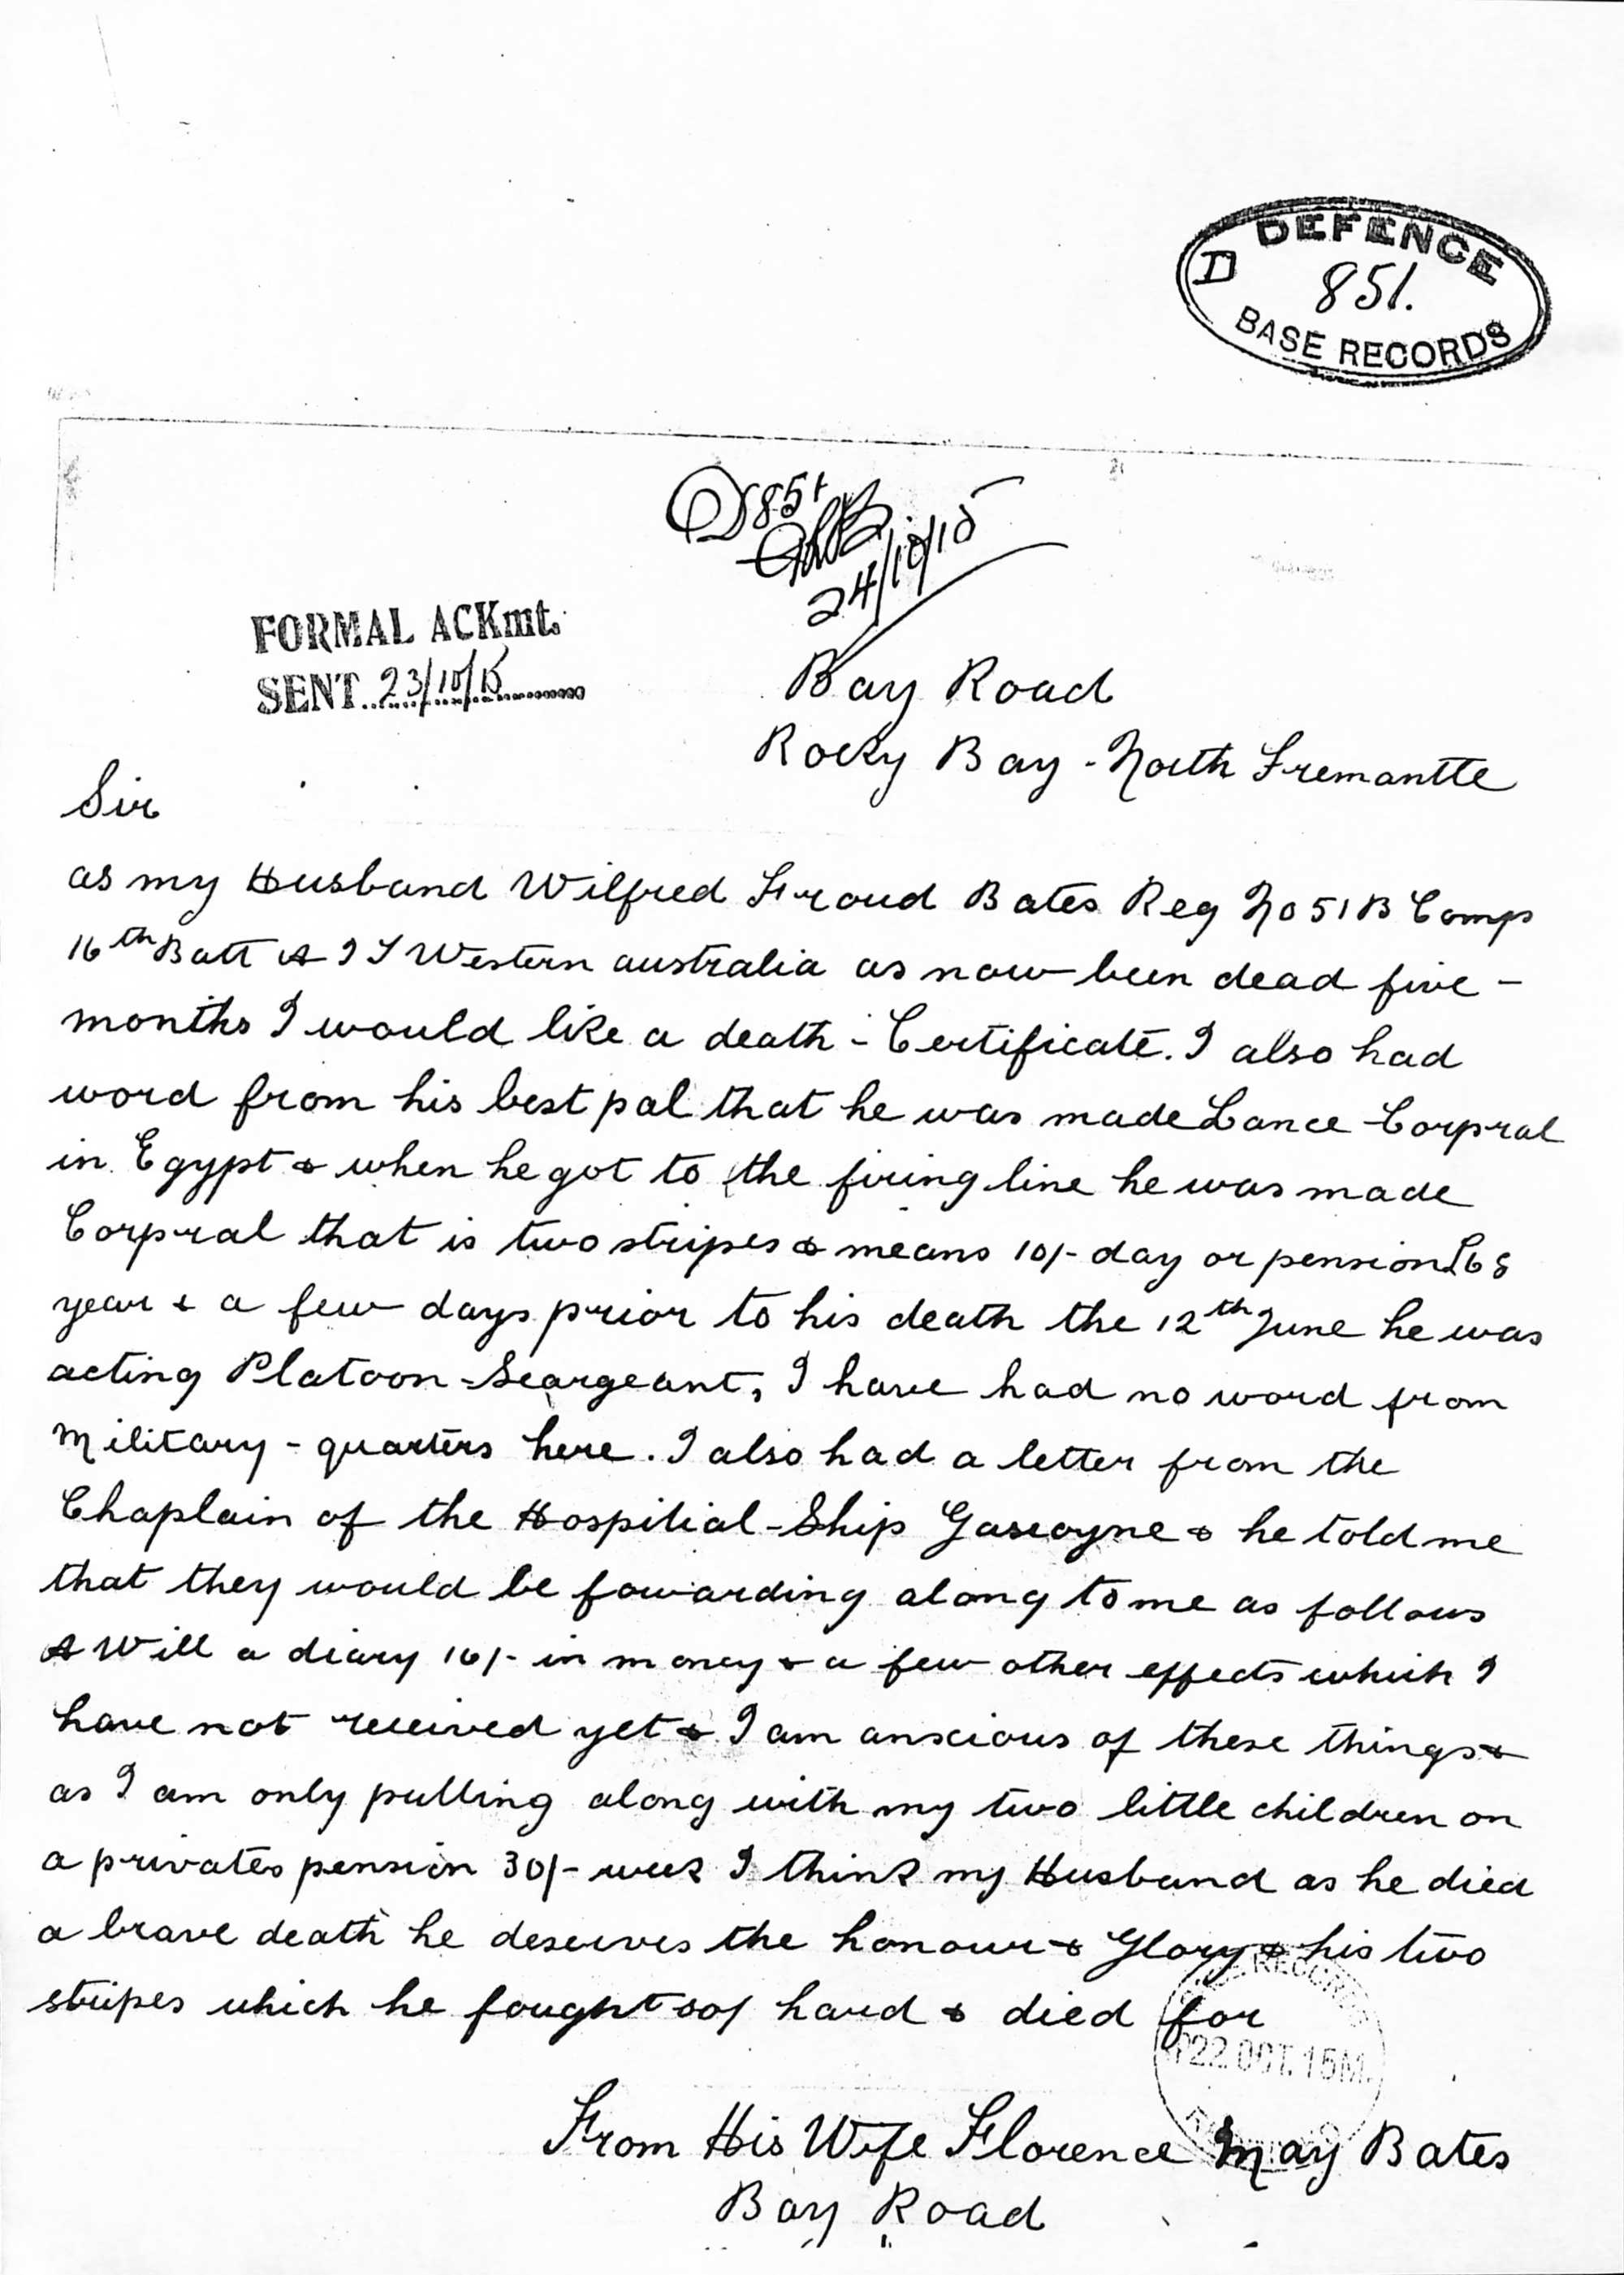 DEFENCE
D
851.
BASE RECORDS
D851
24/10/15
FORMAL ACKmt.
SENT 23/10/15
Bay Road
Rocky Bay - North Fremantle
Sir
as my Husband Wilfred Froud Bates Reg No 51 B Comp
16th Batt A I F Western australia as now been dead five -
months I would like a death - Certificate. I also had
word from his best pal that he was made Lance - Corpral
in Egypt & when he got to the firing line he was made
Corpral that is two stripes & means 10/- day or pension £68
year & a few days prior to his death the 12th June he was
acting Platoon - Seargeant, I have had no word from
Military - quarters here. I also had a letter from the
Chaplain of the Hospitial - Ship Gascoyne & he told me
that they would be fowarding along to me as follows
A Will a diary 16/- in money & a few other effects which I
have not received yet & I am anscious of these things &
as I am only pulling along with my two little children on
a privates pension 30/- week I think my Husband as he died
a brave death he deserves the honour & Glory & his two
stripes which he fought so hard & died for
RECORDS
22 OCT. 15
From His Wife Florence May Bates
Bay Road